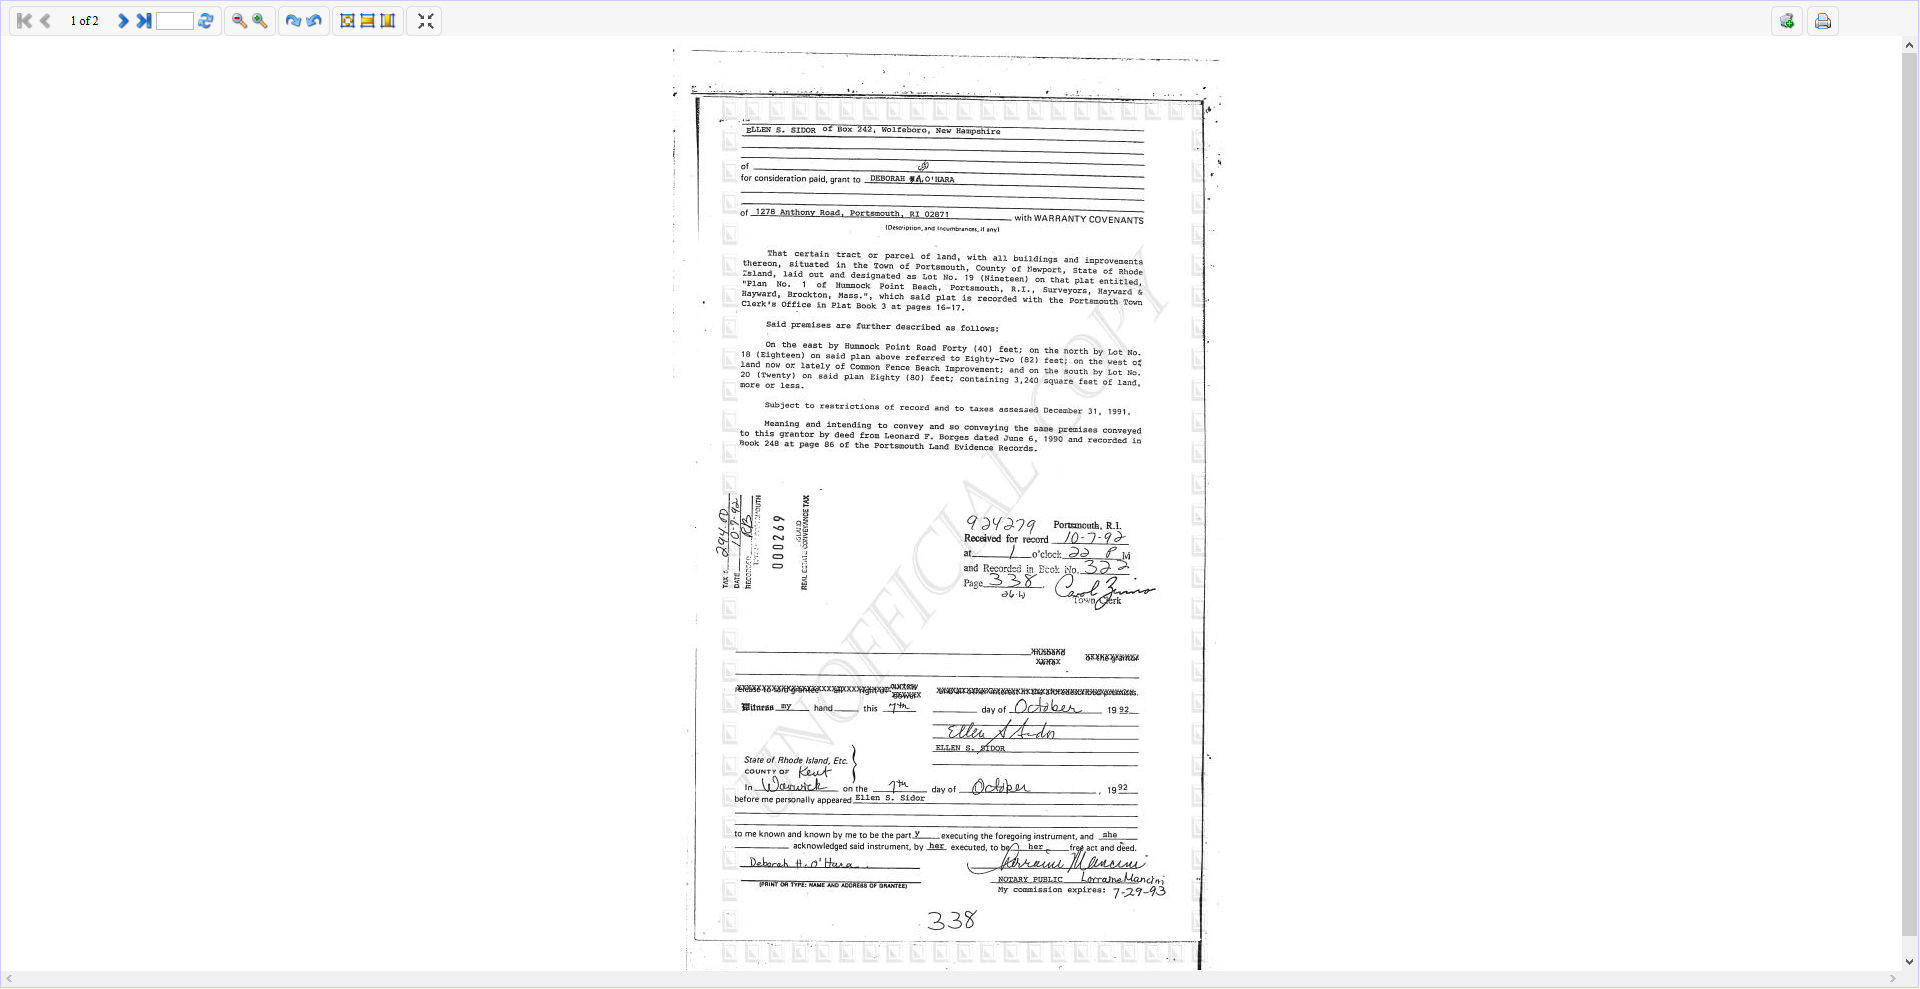 1 of 2
ELLEN S. SIDOR of Box 242, Wolfeboro, New Hampshire
of
for consideration paid, grant to DEBORAH A. O'HARA
of 1278 Anthony Road, Portsmouth, RI 02871 with WARRANTY COVENANTS
(Description, and Incumbrances, if any)
That certain tract or parcel of land, with all buildings and improvements
thereon, situated in the Town of Portsmouth, County of Newport, State of Rhode
Island, laid out and designated as Lot No. 19 (Nineteen) on that plat entitled,
"Plan No. 1 of Hummock Point Beach, Portsmouth, R.I., Surveyors, Hayward &
Hayward, Brockton, Mass.", which said plat is recorded with the Portsmouth Town
Clerk's Office in Plat Book 3 at pages 16-17.
Said premises are further described as follows:
On the east by Hummock Point Road Forty (40) feet; on the north by Lot No.
18 (Eighteen) on said plan above referred to Eighty-Two (82) feet; on the west of
land now or lately of Common Fence Beach Improvement; and on the south by Lot No.
20 (Twenty) on said plan Eighty (80) feet; containing 3,240 square feet of land,
more or less.
Subject to restrictions of record and to taxes assessed December 31, 1991.
Meaning and intending to convey and so conveying the same premises conveyed
to this grantor by deed from Leonard F. Borges dated June 6, 1990 and recorded in
Book 248 at page 86 of the Portsmouth Land Evidence Records.
TAX $ 294.00
DATE 10-7-92
RECORDER RB
000269
REAL ESTATE CONVEYANCE TAX
924279 Portsmouth, R.I.
Received for record 10-7-92
at 1 o'clock 22 P M
and Recorded in Book No. 322
Page 338
Carol Zinno
Town Clerk
husband
wife
of the grantor
release to said grantee all right of curtesy
dower
and all other interest in the aforedescribed premises.
Witness my hand this 7th day of October 1992
Ellen S Sidor
ELLEN S. SIDOR
State of Rhode Island, Etc.
COUNTY OF Kent
In Warwick on the 7th day of October, 1992
before me personally appeared Ellen S. Sidor
to me known and known by me to be the party executing the foregoing instrument, and she
acknowledged said instrument, by her executed, to be her free act and deed.
Deborah H. O'Hara Lorraine Mancini
(PRINT OR TYPE: NAME AND ADDRESS OF GRANTEE)
NOTARY PUBLIC Lorraine Mancini
My commission expires: 7-29-93
338
UNOFFICIAL COPY